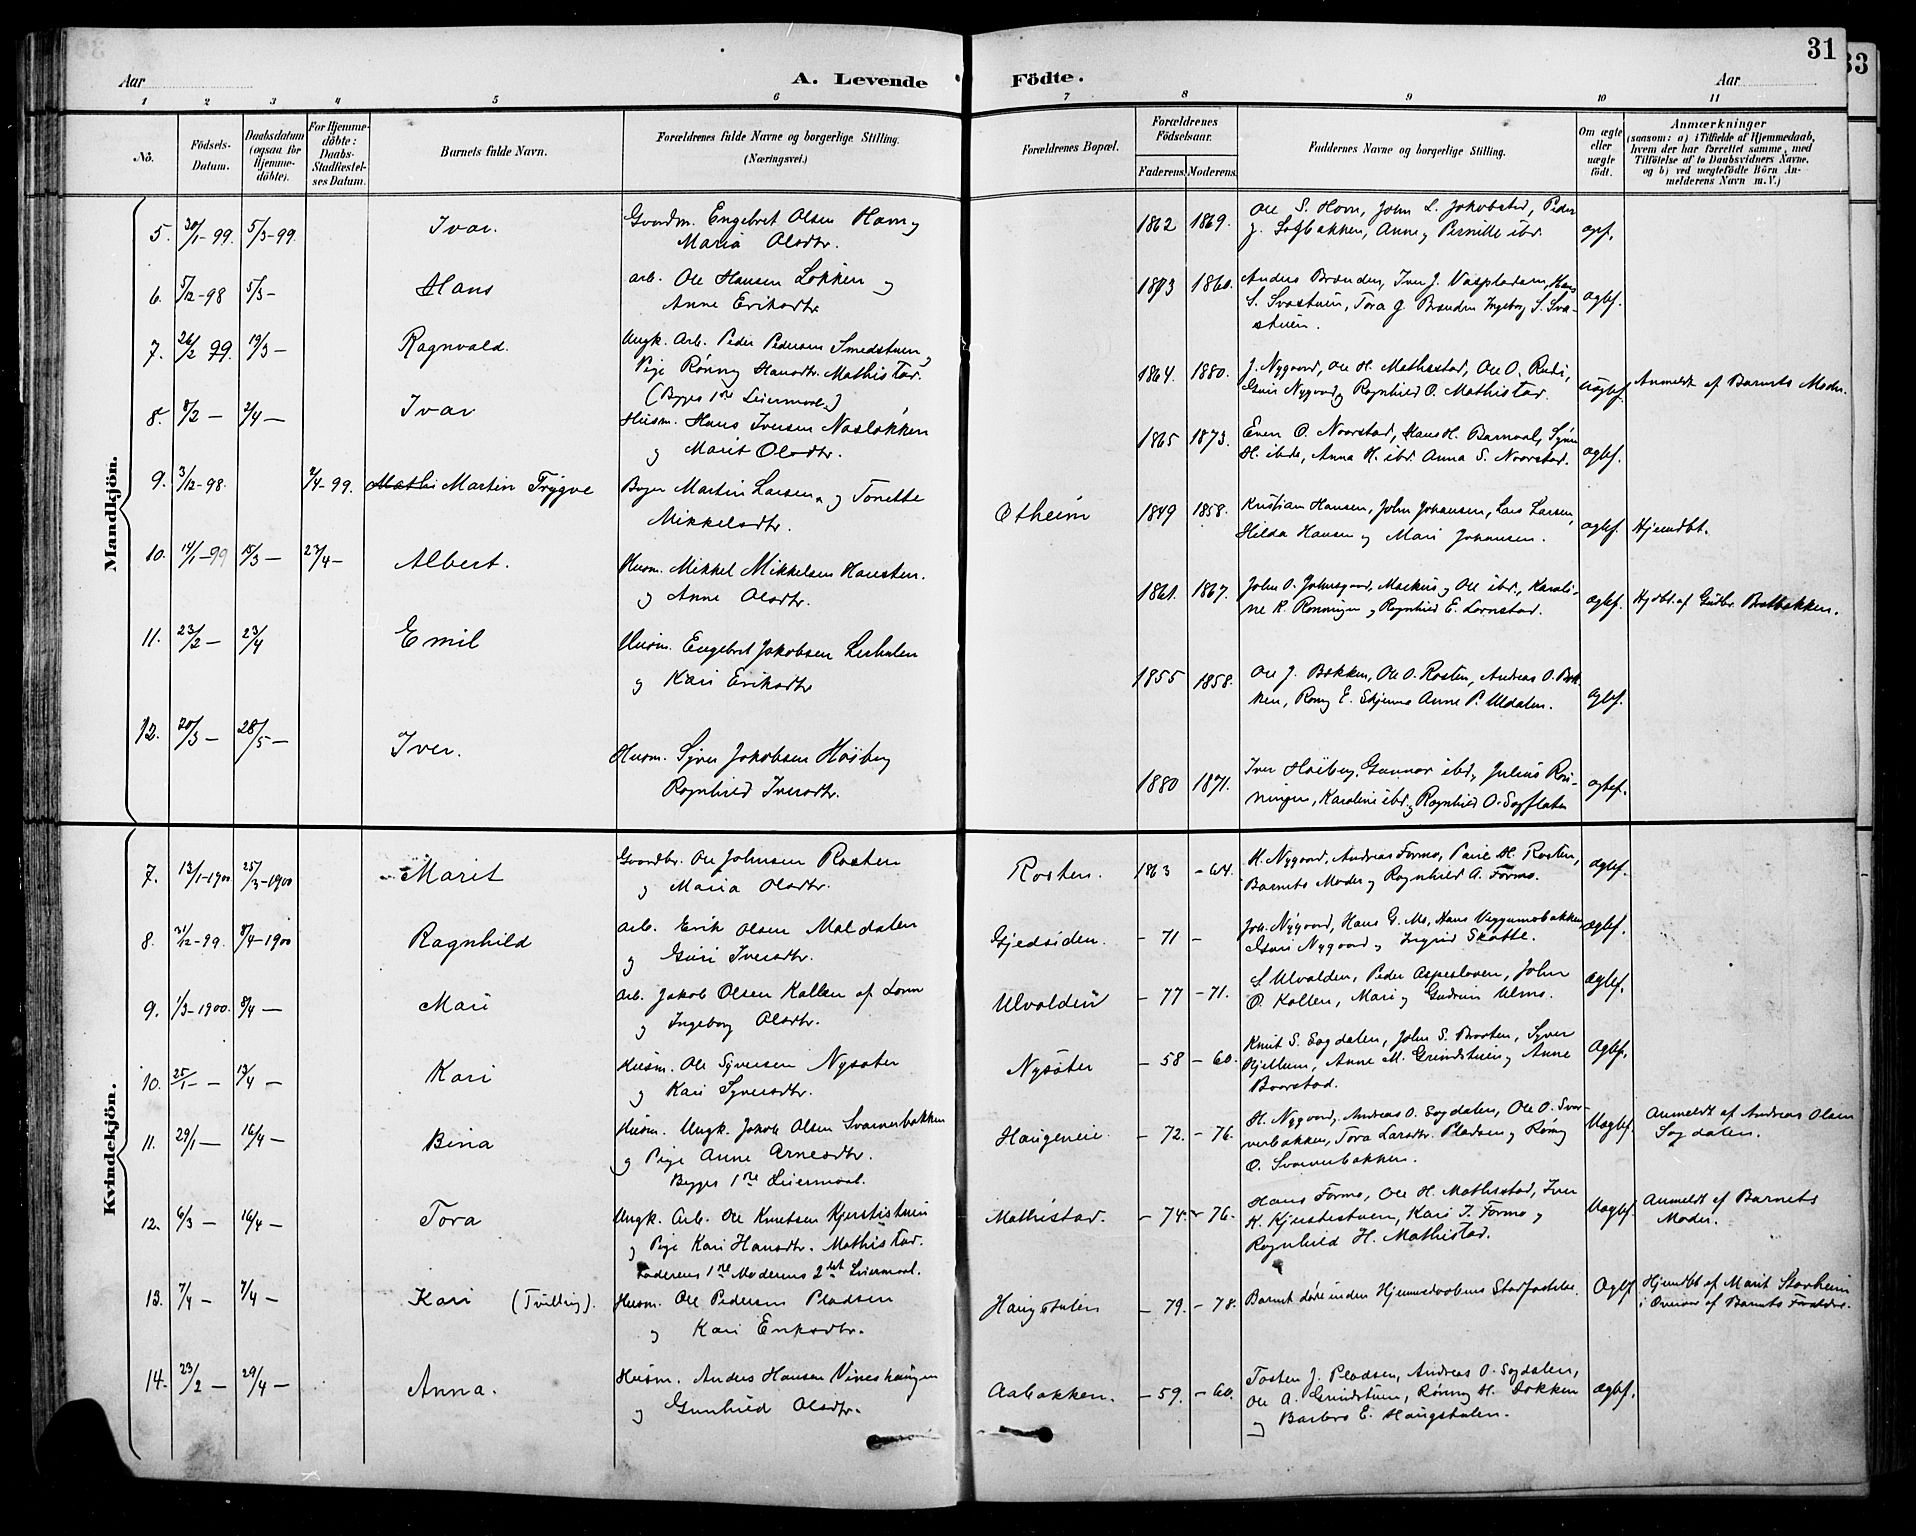 31
33
Aar
A. Levende
Födte.
Aar
1 2 3 4 5 6 7 8 9 10 11
No.
Födsels-Datum.
Daabsdatum (ogsaa for Hjemme-döbte).
For Hjemme-döbte: Daabs-Stadfæstel-ses Datum.
Barnets fulde Navn.
Forældrenes fulde Navne og borgerlige Stilling.
(Næringsvei.)
Forældrenes Bopæl.
Forældrenes Födselsaar.
Faderens. Moderens.
Faddernes Navne og borgerlige Stilling.
Om ægte eller uægte födt.
Anmærkninger
(saasom: a) i Tilfælde af Hjemmedaab, hvem der har forrettet samme, med Tilföielse af to Daabsvidners Navne, og b) ved uægtefödte Börn An-melderens Navn m. V.)
Mandkjön.
5. 30/1-99. 5/3-99. Ivar. Gaardm. Engebret Olsen Hovn og 1862 1869. Ole S. Hovn, John L. Jakobstad, Peder
Maria Olsdtr. Anne og Pernille ibd. ægf.
6. 5/12-98 5/3- Hans arb. Ole Hansen Løkken og 1873 1860. Anders Brænden, Iver J. Vaspladsen, Hans
Anne Eriksdtr S. Svastuen, Tora J. Brænden Ingeborg S. Sva- ægtef.
stuen.
7. 26/2 99. 19/3- Ragnvald. Ungk. Arb. Peder Pedersen Smedstuen og
Pige Rønnog Hansdtr. Mathistad. 1864. 1880. J. Nygaard, Ole H. Mathistad, Ole O. Rudi, uægtef. Anmeldt af Barnets Moder.
(Begges 1ste Leiermaal.) Guri Nygaard og Ragnhild O. Mathistad.
8. 8/2- 2/4- Ivar Husm. Hans Iversen Nasløkken 1865 1873. Even O. Noorstad, Hans H. Barnval,
og Marit Olsdtr. H. ibd., Anna H. ibd. Anna S. Noorstad. ægtef.
9. 3/12-98. 2/4-99. Mathi Martin Trygve Martin Larsen og Tonette Otheim 1849 1858. Kristian Hansen, John Johansen, Lars Larsen, ægtef. Hjemdbt.
Mikkelsdtr. Hilda Hansen og Mari Johansen.
10. 14/1-99 15/3- 23/4- Albert. Husm. Mikkel Mikkelsen Hausten. 1861. 1867. John O. Jonsgaard, Markus og Ole ibd., Karoli- ægtef. Hjdbt. af Gudbr. Bakbakken.
og Anne Olsdtr. ne K. Rønningen og Ragnhild E. Lornstad.
11. 23/2- 23/4 Emil Husm. Engebret Jakobsen Lerhølen 1855 1858. Ole J. Bakken, Ole O. Rosten, Andreas O. Bak-
og Kari Eriksdtr ken, Rønnog E. Skjenna Anne P. Uldalen. ægtef.
12. 20/3- 28/5- Iver. Husm. Syver Jakobsen Høiberg 1880 1871. Iver Høiberg, Gunnar ibd., Julius Røn-
Ragnhild Iversdtr. ningen, Karoline ibd. og Ragnhild O. Sagflaten ægtef.
Kvindekjön.
7. 13/1-1900 25/3-1900 Marit Gaardbr. Ole Johnsen Rosten Rosten. 1863 -64. H. Nygaard, Andreas Formo, H. Rosten, ægtef.
og Maria Olsdtr. Barnets Moder og Ragnhild A. Formo.
8. 31/12-99. 8/4-1900 Ragnhild arb. Erik Olsen Moldalen Gjedsiden. -71 - Joh. Nygaard, Hans G. Mo, Hans Viggumsbakken ægtef.
og Guri Iversdtr. Guri Nygaard og Ingrid Skatte.
9. 1/3-1900. 8/4- Mari Arb. Jakob Olsen Kollen af Lom Ulvolden -77 -71. S. Ulvolden, Peder Aspesloven, John ægtef.
og Ingeborg Olsdtr. O. Kollen, Mari og Gudrun Ulmo.
10. 25/1- 13/4- Kari Husm. Ole Syversen Nysæter Nysæter -58 -60. Knut S. Sogdalen, John S. Brosten, Syver Ægtef.
og Kari Syversdtr. Kjellum, Anne M. Grindstuen og Anne
Baarstad.
11. 29/1- 16/4- Bina Husm. Ungk. Jakob Olsen Svarverbakken Haugeneie. -72. -76. H. Nygaard, Andreas O. Sogdalen, Ole O. Svar- Uægtef. Anmeldt af Andreas Olsen
og Pige Anne Arnesdtr. verbakken, Tora Larsdtr. Pladsen og Rønnog Sogdalen.
Begges 1ste Leiermaal. O. Svarverbakken.
12. 6/3- 16/4- Tora Ungk. Arb. Ole Knutsen Kjerstistuen Mathistad. -74. -76. Hans Formo, Ole H. Mathistad, Iver Uægtef. Anmeldt af Barnets
og Pige Kari Hansdtr. Mathistad. K. Kjerstistuen, Kari J. Formo og Moder.
Faderens 1ste Moderens 2det Leiermaal. Ragnhild H. Mathistad.
13. 7/4- 7/4- Kari (Tvilling). Husm. Ole Pedersen Pladsen Haugstulen -79. -78. Barnet døde inden Hjemmedaabens Stadfæstelse. Ægtef Hjemdbt af Marit Storheim
og Kari Eriksdtr. i Overvær af Barnets Forældre.
14. 23/2- 29/4- Anna. Husm. Anders Hansen Vineshaugen Aabakken. -59. -60. Tosten J. Pladsen, Andreas O. Sogdalen, Ægtef.
og Gunhild Olsdtr. Ole A. Grindstuen, Rønnog H. Løkken
og Barbro E. Haugstulen.